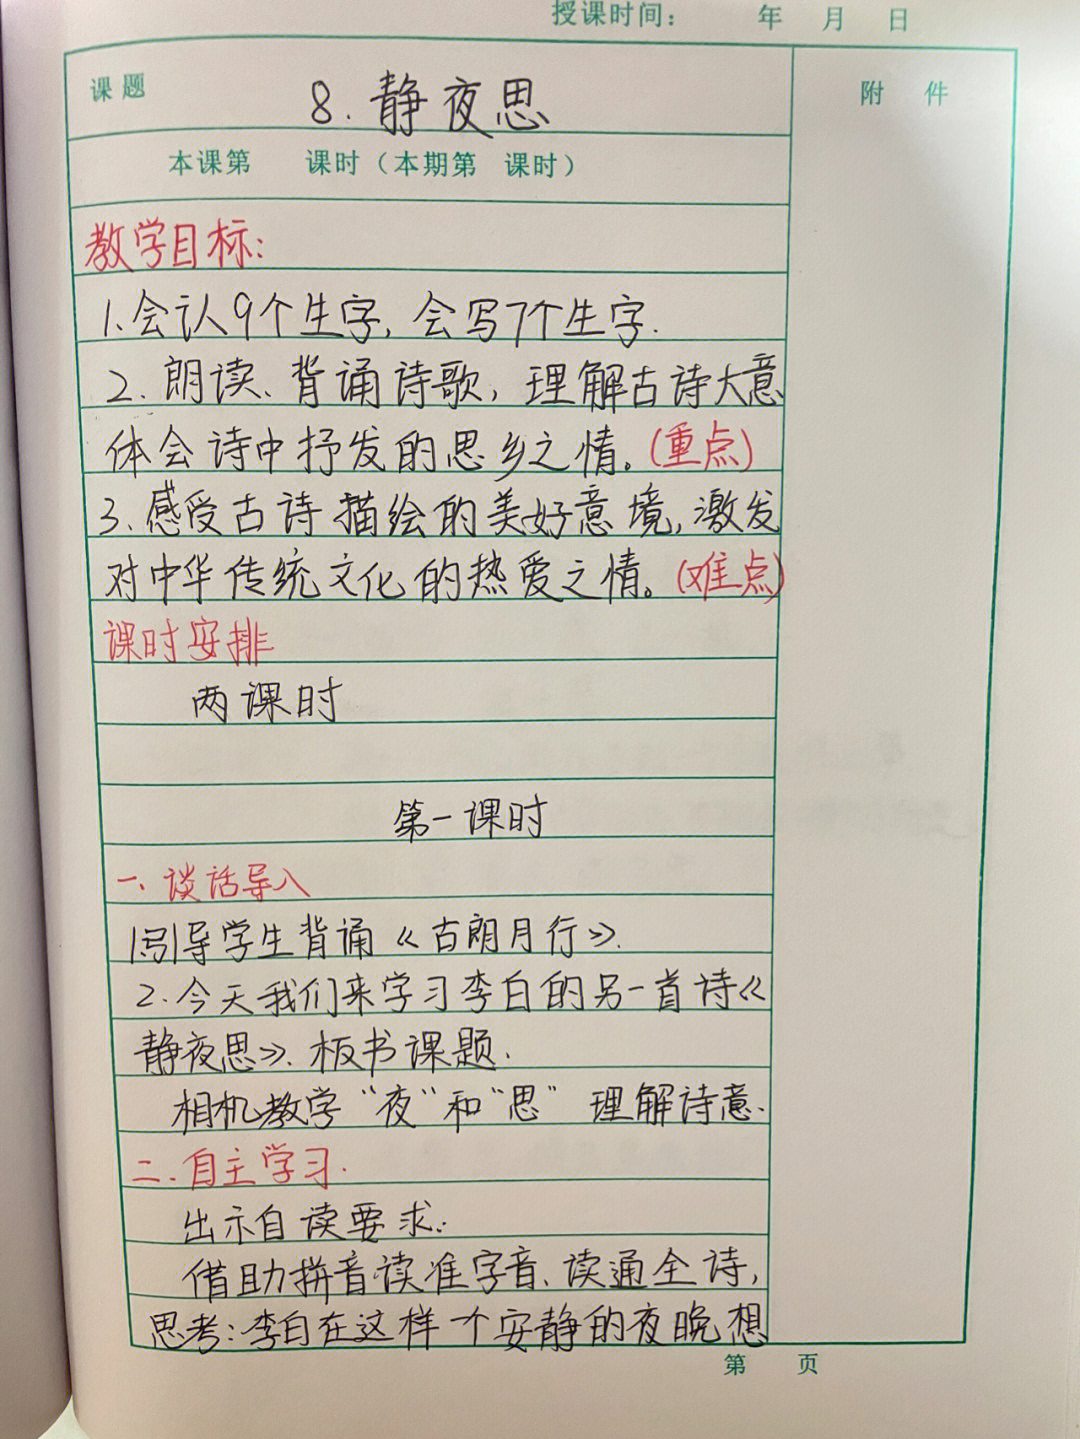 授课时间： 年 月 日
课题 8.静夜思
附 件
本课第 课时（本期第 课时）
教学目标:
1.会认9个生字,会写7个生字.
2.朗读、背诵诗歌,理解古诗大意
体会诗中抒发的思乡之情。(重点)
3.感受古诗描绘的美好意境,激发
对中华传统文化的热爱之情。(难点)
课时安排
两课时
第一课时
一、谈话导入
1.引导学生背诵《古朗月行》.
2.今天我们来学习李白的另一首诗《
静夜思》.板书课题.
相机教学“夜”和“思”理解诗意.
二.自主学习.
出示自读要求:
借助拼音读准字音、读通全诗,
思考:李白在这样一个安静的夜晚想
第 页